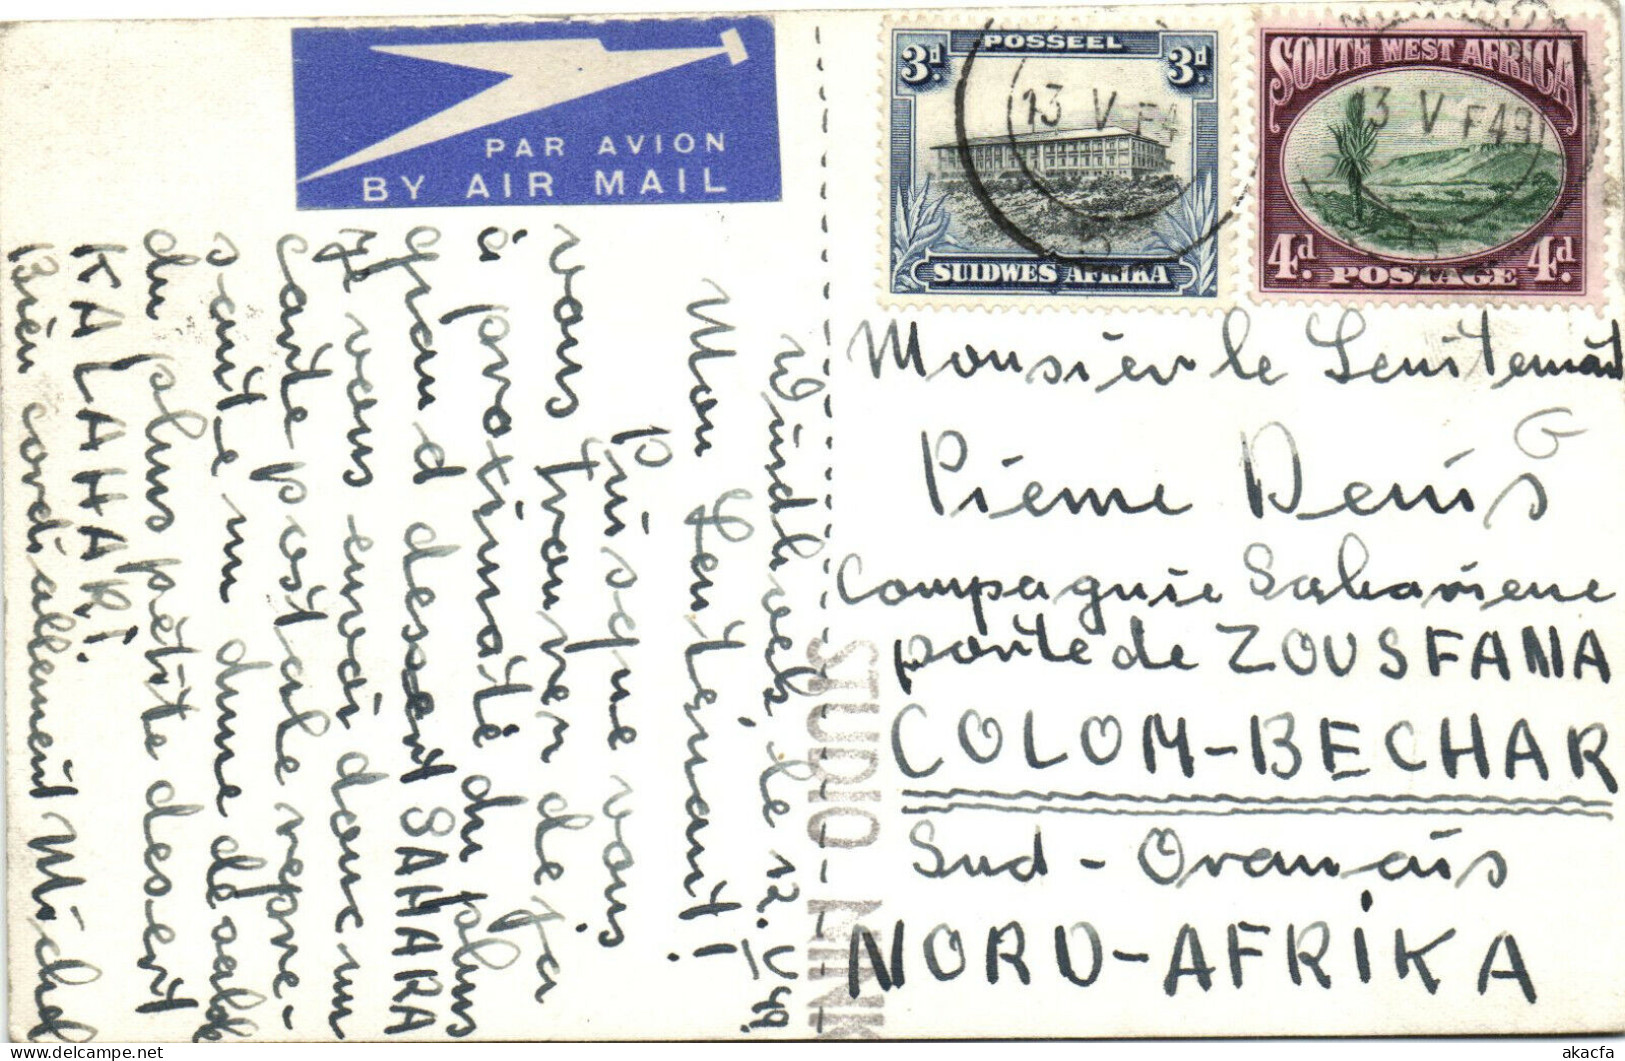 PAR AVION
BY AIR MAIL
3d. POSSEEL 3d.
SUIDWES AFRIKA
13 V F4
SOUTH WEST AFRICA
4d. POSTAGE 4d.
13 V F49
Windhoek, le 12. V 49.
Mon Lieutenant!
Puisque vous
vous trouver deja
à proximité du plus
grand dessert SAHARA
je vous envoi donc un
carte postale repré-
sante un dune de sable
du plus petite desert
KALAHARI.
Bien cordiallement Michel
STUDIO - NINK
Monsieur le Leuitenant
Pierre Denis
Compagnie Saharienne
portée de ZOUSFANA
COLOM-BECHAR
Sud-Oranais
NORD-AFRIKA
akacfa